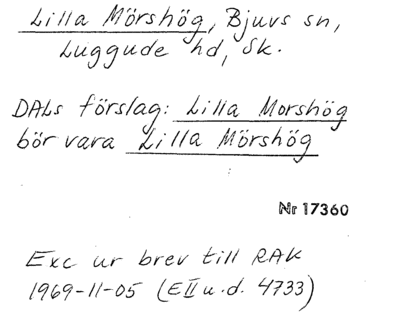 Lilla Mörshög, Bjuvs sn,
Luggude hd, Sk.
DALs förslag: Lilla Morshög
bör vara Lilla Mörshög
Nr 17360
Exc ur brev till RAK
1969-11-05 (EII u.d. 4733)